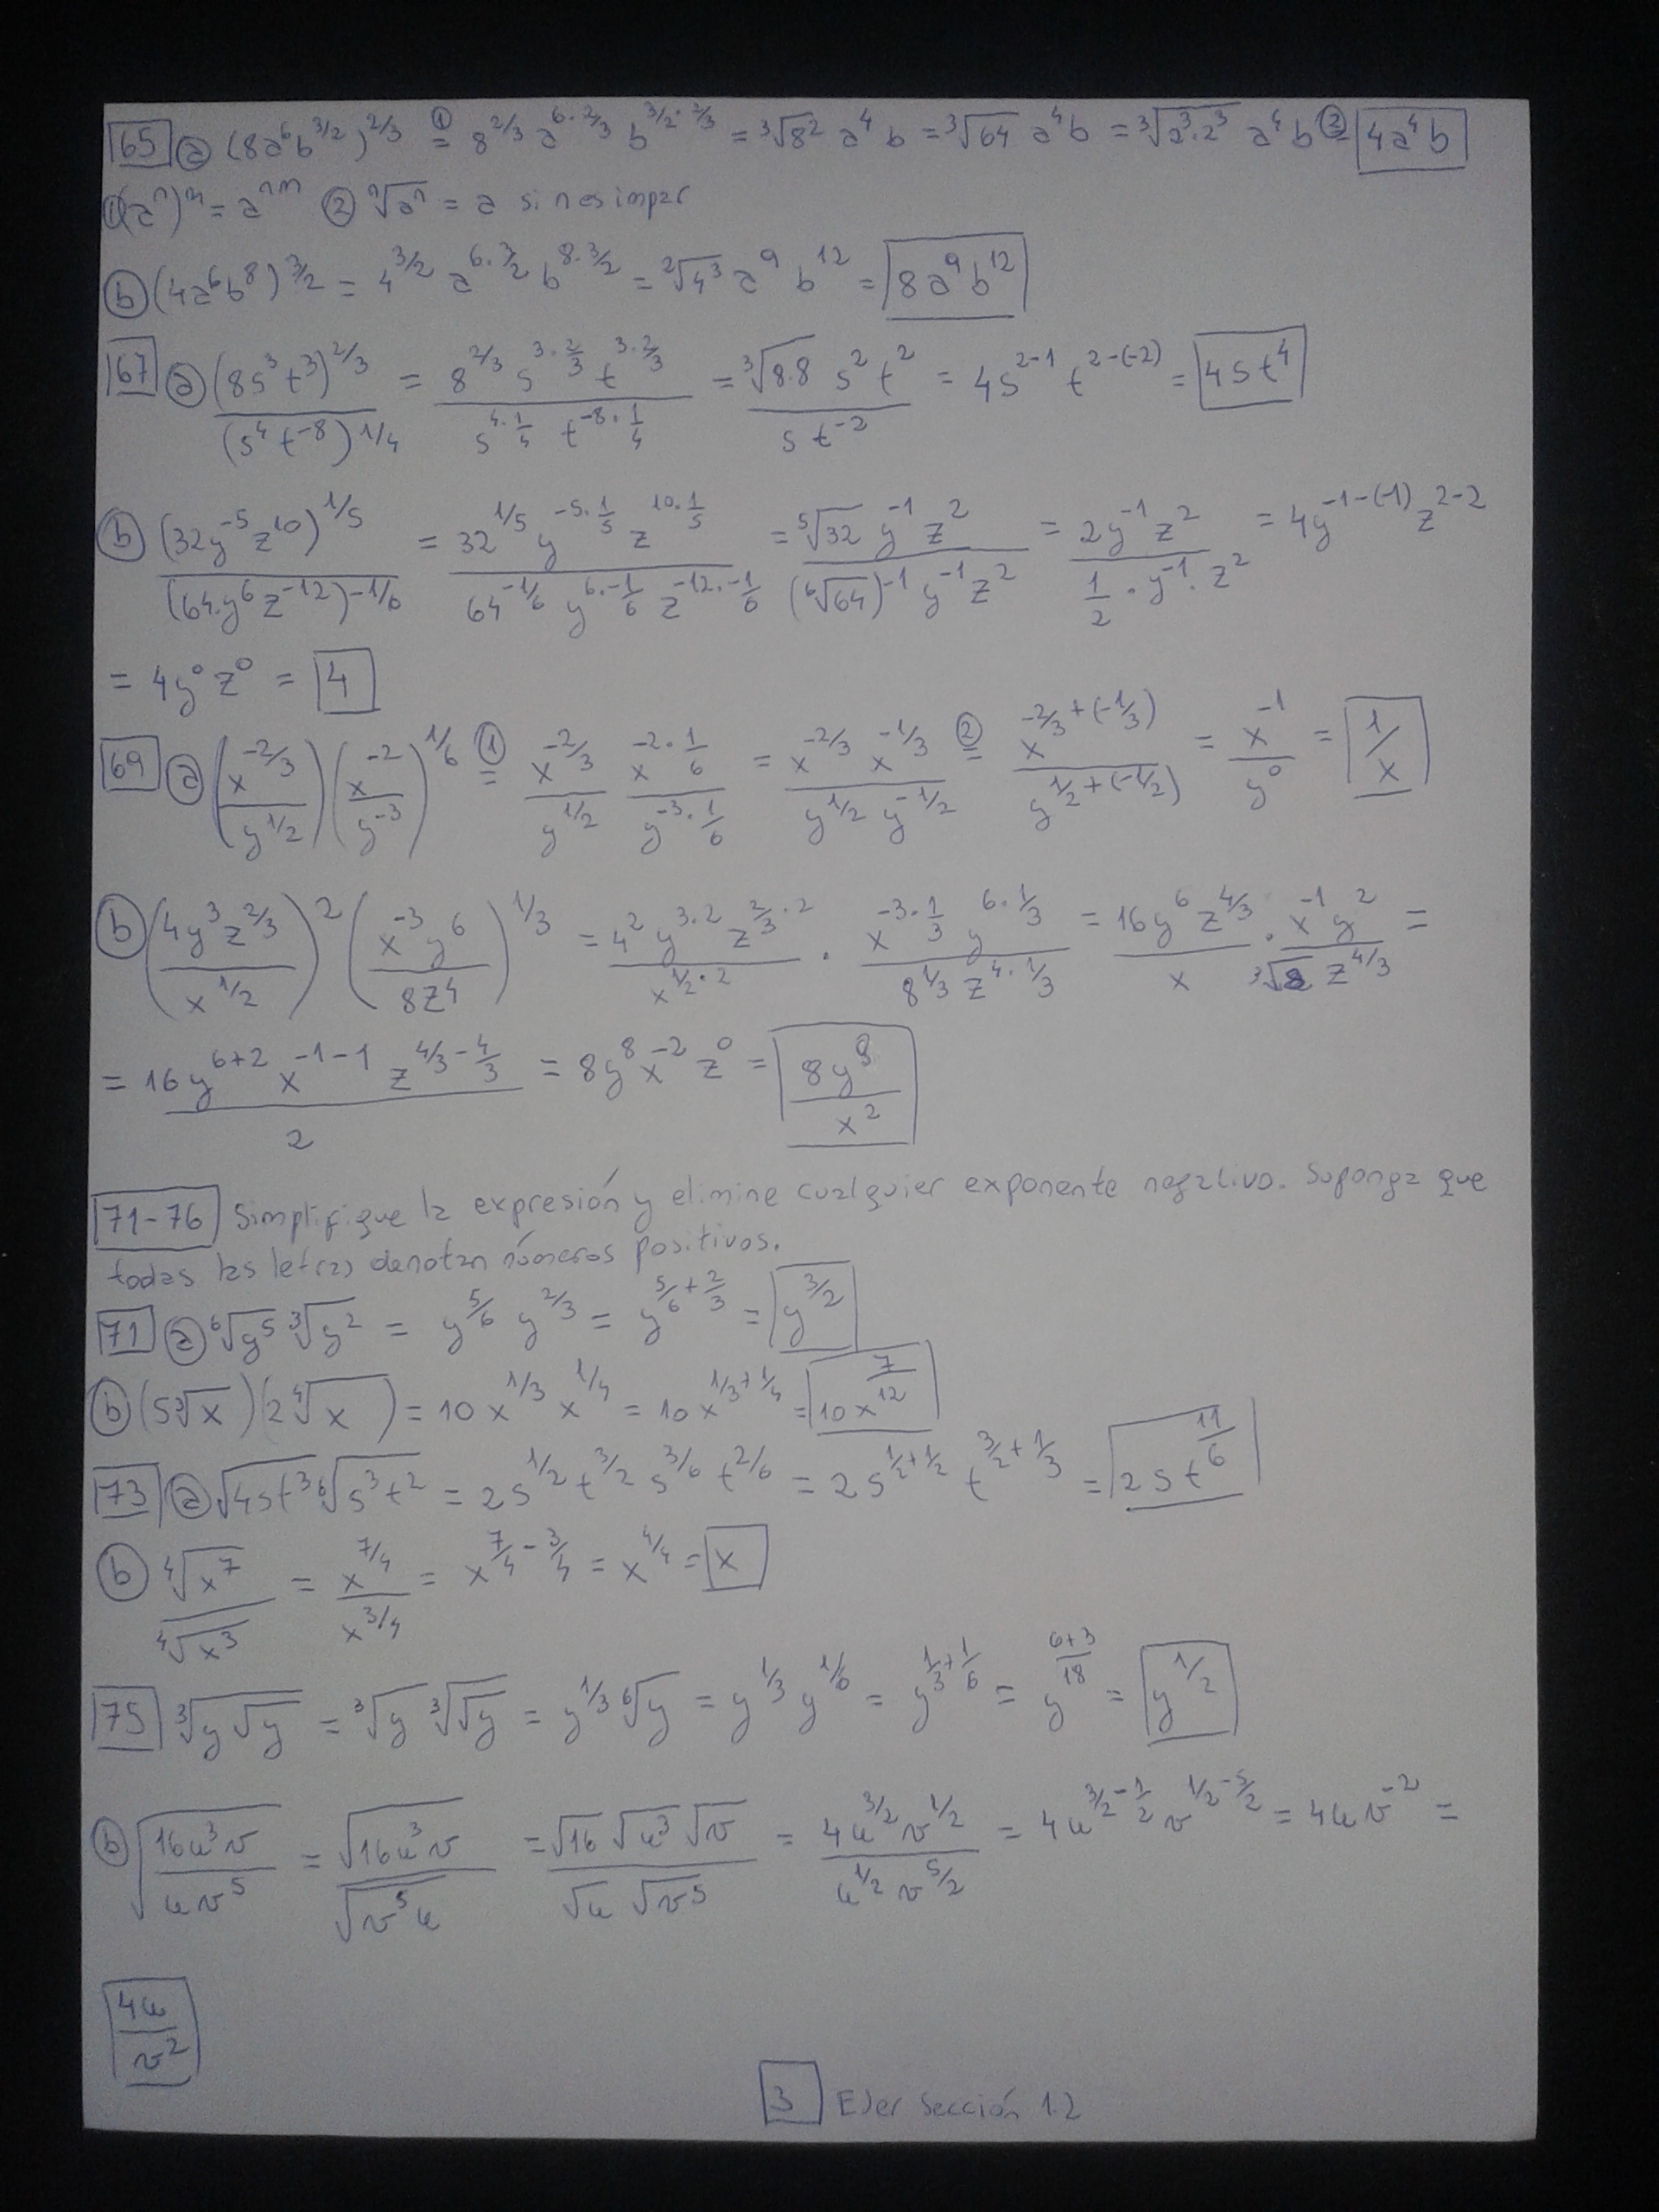 65 a) (8a⁶b^(3/2))^(2/3) =① 8^(2/3) a^(6·2/3) b^(3/2·2/3) = ³√8² a⁴ b = ³√64 a⁴b = ³√(2³·2³) a⁴b ②= 4a⁴b
① (aⁿ)ᵐ = a^(nm) ② ⁿ√aⁿ = a si n es impar
b) (4a⁶b⁸)^(3/2) = 4^(3/2) a^(6·3/2) b^(8·3/2) = ²√4³ a⁹ b¹² = 8a⁹b¹²
67 a) (8s³t³)^(2/3) / (s⁴t⁻⁸)^(1/4) = 8^(2/3) s^(3·2/3) t^(3·2/3) / s^(4·1/4) t^(-8·1/4) = ³√(8·8) s² t² / s t⁻² = 4s^(2-1) t^(2-(-2)) = 4st⁴
b) (32y⁻⁵z¹⁰)^(1/5) / (64y⁶z⁻¹²)^(-1/6) = 32^(1/5) y^(-5·1/5) z^(10·1/5) / 64^(-1/6) y^(6·-1/6) z^(-12·-1/6) = ⁵√32 y⁻¹ z² / (⁶√64)⁻¹ y⁻¹ z² = 2y⁻¹z² / 1/2 · y⁻¹ · z² = 4y^(-1-(-1)) z^(2-2)
= 4y⁰z⁰ = 4
69 a) (x^(-2/3) / y^(1/2)) (x⁻² / y⁻³)^(1/6) =① x^(-2/3) / y^(1/2) x^(-2·1/6) / y^(-3·1/6) = x^(-2/3) x^(-1/3) / y^(1/2) y^(-1/2) =② x^(-2/3+(-1/3)) / y^(1/2+(-1/2)) = x⁻¹ / y⁰ = 1/x
b) (4y³z^(2/3) / x^(1/2))² (x⁻³y⁶ / 8z⁴)^(1/3) = 4² y^(3·2) z^(2/3·2) / x^(1/2·2) · x^(-3·1/3) y^(6·1/3) / 8^(1/3) z^(4·1/3) = 16y⁶z^(4/3) / x · x⁻¹y² / ³√8 z^(4/3) =
= 16y^(6+2) x^(-1-1) z^(4/3-4/3) / 2 = 8y⁸x⁻²z⁰ = 8y⁸ / x²
71-76 Simplifique la expresión y elimine cualquier exponente negativo. Suponga que
todas las letras denotan números positivos.
71 a) ⁶√y⁵ ³√y² = y^(5/6) y^(2/3) = y^(5/6+2/3) = y^(3/2)
b) (5³√x)(2⁴√x) = 10x^(1/3) x^(1/4) = 10x^(1/3+1/4) = 10x^(7/12)
73 a) √(4st³) ⁶√(s³t²) = 2s^(1/2) t^(3/2) s^(3/6) t^(2/6) = 2s^(1/2+1/2) t^(3/2+1/3) = 2st^(11/6)
b) ⁴√x⁷ / ⁴√x³ = x^(7/4) / x^(3/4) = x^(7/4-3/4) = x^(4/4) = x
75 ³√(y√y) = ³√y ³√√y = y^(1/3) ⁶√y = y^(1/3) y^(1/6) = y^(1/3+1/6) = y^((6+3)/18) = y^(1/2)
b) √(16u³v / uv⁵) = √(16u³v) / √(v⁵u) = √16 √u³ √v / √u √v⁵ = 4u^(3/2) v^(1/2) / u^(1/2) v^(5/2) = 4u^(3/2-1/2) v^(1/2-5/2) = 4uv⁻² =
4u / v²
3 Ejer Sección 1.2